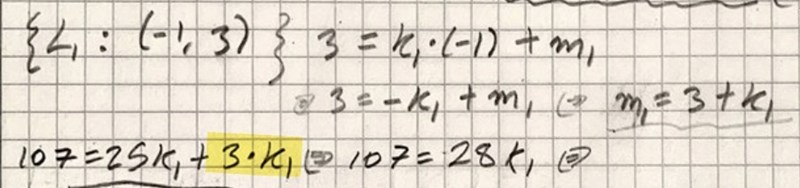 {L₁ : (-1, 3)} 3 = k₁·(-1) + m₁
⇔ 3 = -k₁ + m₁ ⇔ m₁ = 3 + k₁
107 = 25k₁ + 3·k₁ ⇔ 107 = 28k₁ ⇔